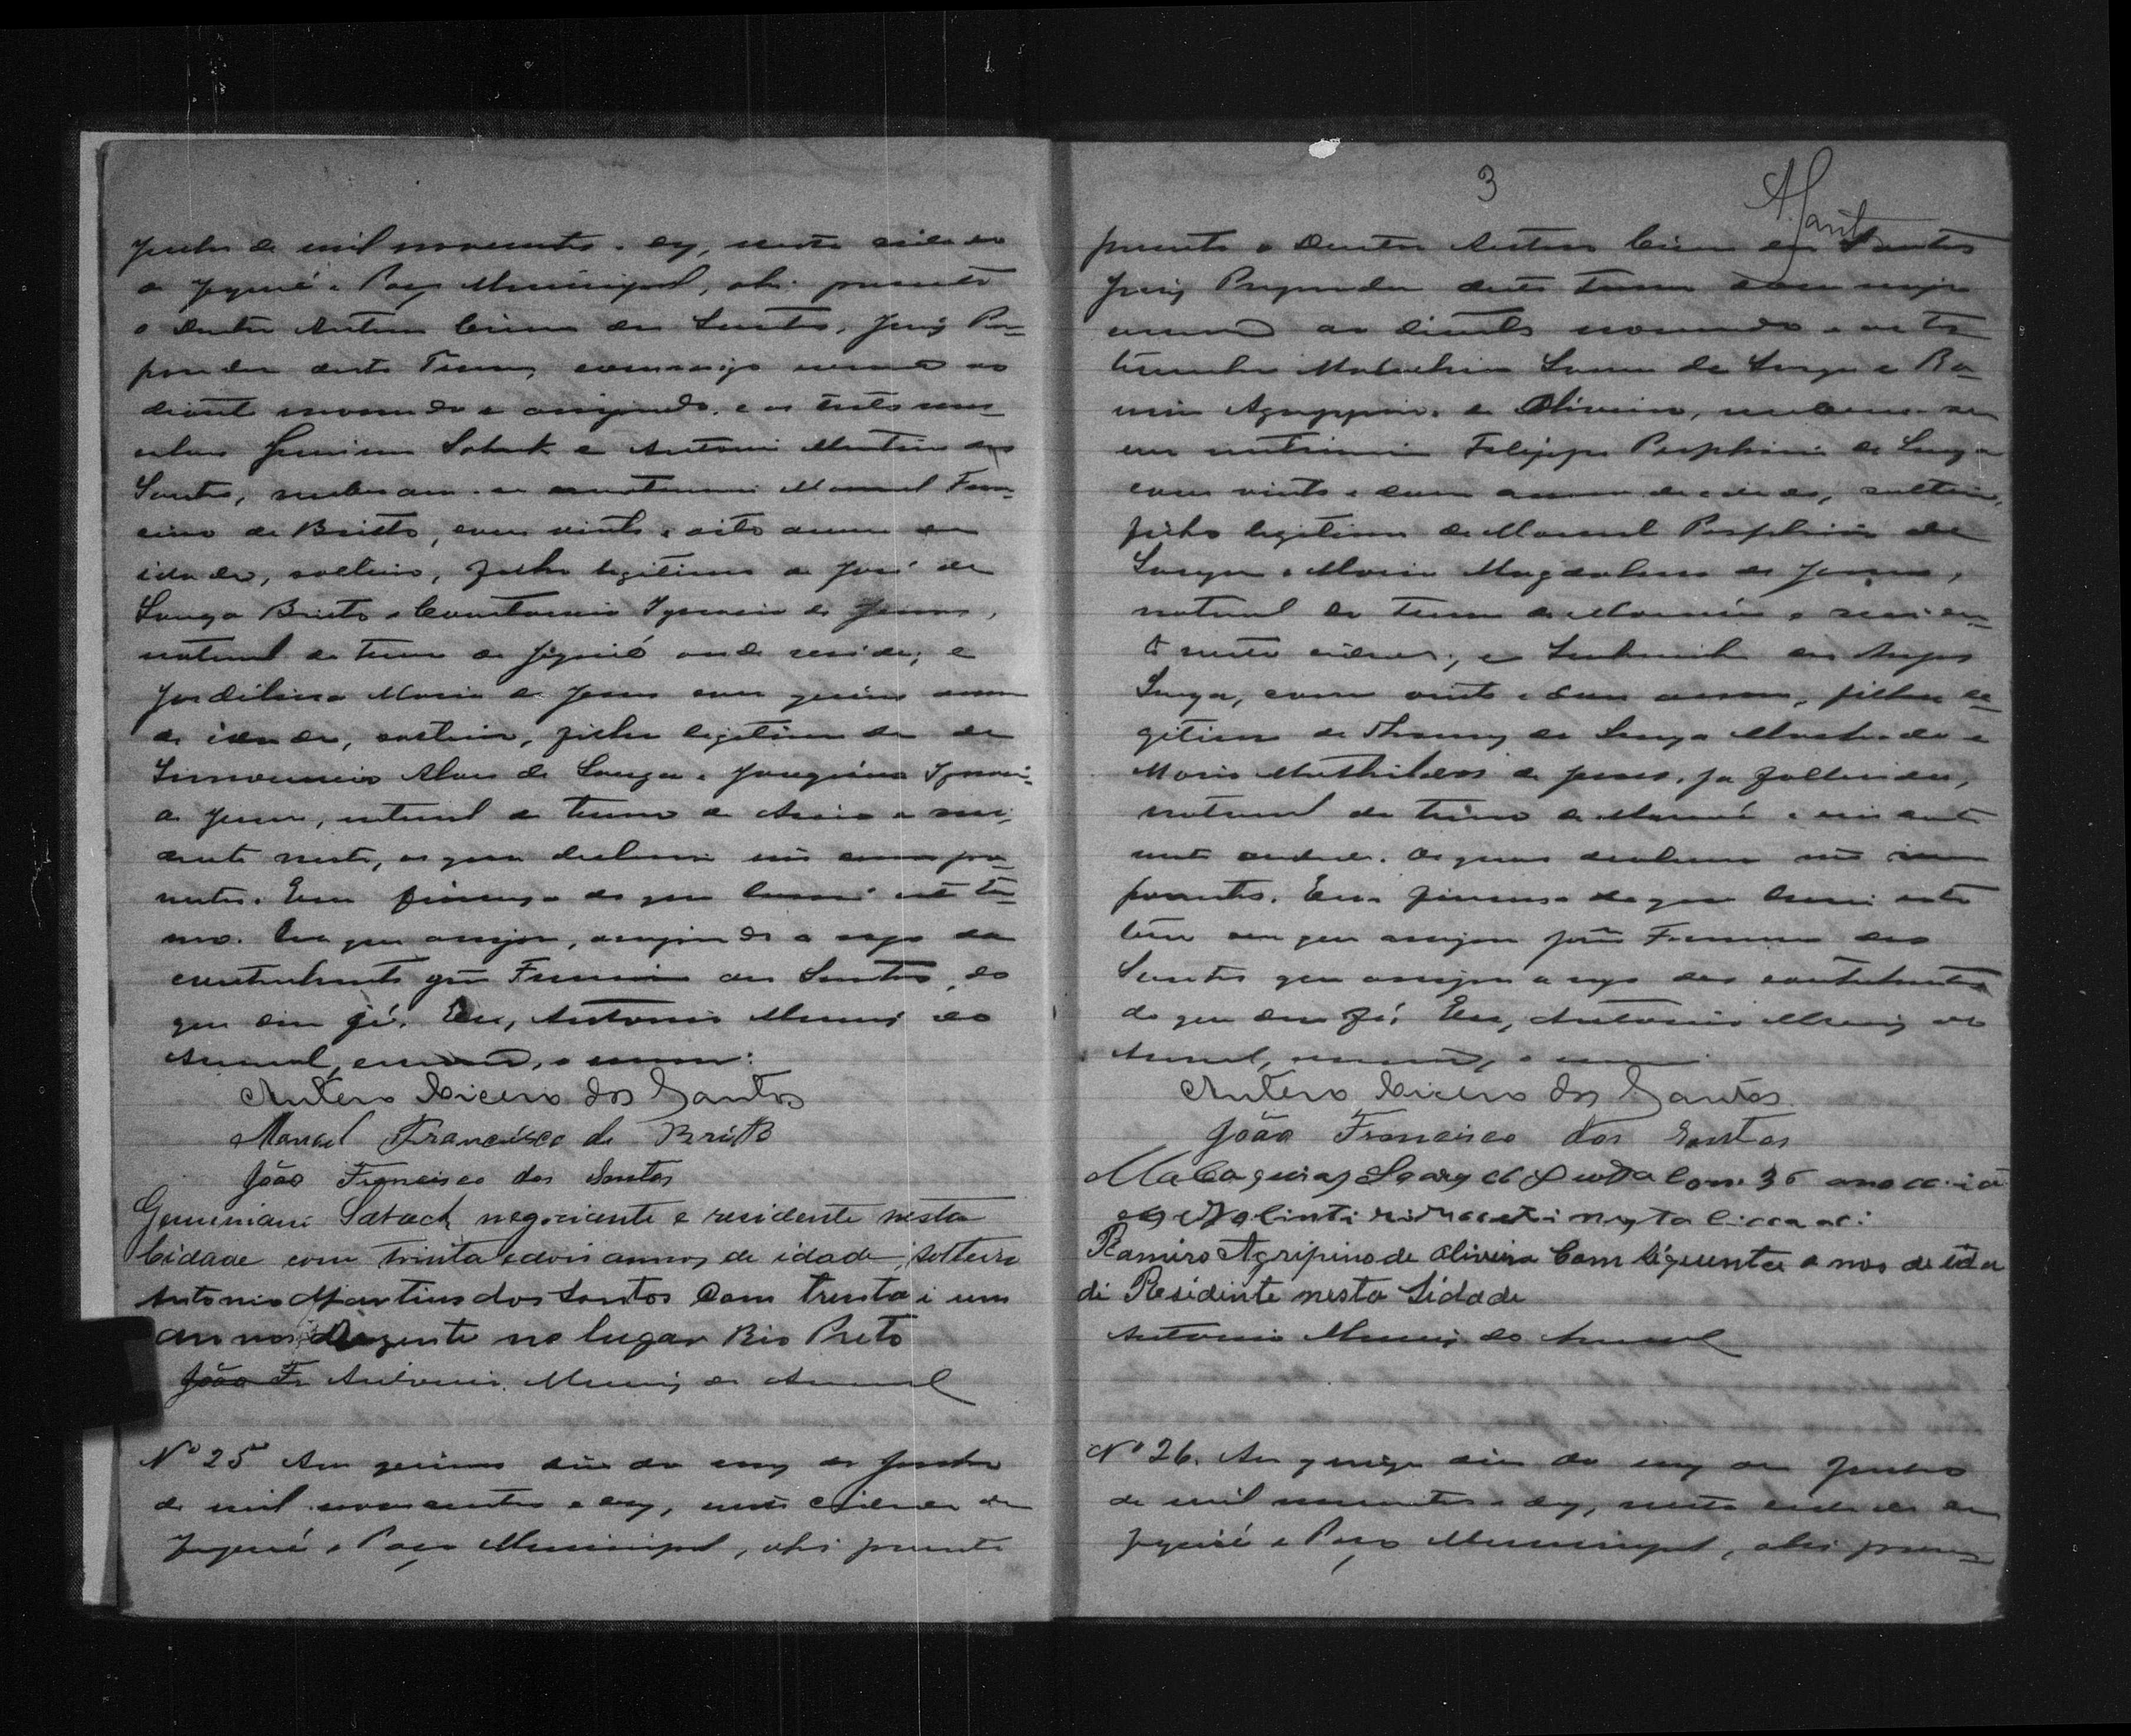 Junho de mil novecentos e dez, nesta cidade
de Jequié e Paço Municipal, ahi presente
o Doutor Antero Cicero dos Santos, Juiz Pre-
parador deste Termo, commigo escrivão ao
diante nomeado e assignado, e as testemu-
nhas Geminiano Saback e Antonio Martins dos
Santos, receberam-se em matrimonio Manoel Fran-
cisco de Britto, com vinte e oito annos de
idade, solteiro, filho legitimo de José de
Souza Britto e Constancia Ignacia de Jesus,
natural do termo de Jequié onde reside; e
Jordilina Maria de Jesus com quinze annos
de idade, solteira, filha legitima de
Alves de Souza e Joaquina Ignacia
de Jesus, natural do termo de Areia e resi-
dente nesta, os quaes declaram não serem pa-
rentes. Em firmeza do que lavrei este ter-
mo. Em que assigna, assignando a rogo da
contrahente João Francisco dos Santos, do
que dou fé. Eu, Antonio Muniz do
Amaral, escrivão, o escrevi.
Antero Cicero dos Santos
Manoel Francisco de Britto
João Francisco dos Santos
Geminiano Saback negociante e residente nesta
Cidade com trinta e dois annos de idade, solteiro
Antonio Martins dos Santos Com trinta i um
annos Rezente no lugar Rio Preto
João Fr Antonio Muniz do Amaral
Nº 25 Aos quinze dias do mez de Junho
de mil novecentos e dez, nesta cidade de
Jequié e Paço Municipal, ahi presente
3
A. Sant
presente o Doutor Antero Cicero dos Santos
Juiz Preparador deste Termo commigo
escrivão ao diante nomeado e as tes-
temunhas Malachias Soares de Souza e Ra-
miro Agrippino de Oliveira, receberam-se
em matrimonio Felippe Porphirio de Souza
com vinte e dous annos de idade, solteiro,
filho legitimo de Manoel Porphirio de
Souza e Maria Magdalena de Jesus,
natural do termo de Maracás e residen-
te nesta cidade; e dos Anjos
Souza, com vinte e dous annos, filha le-
gitima de Thomaz de Souza Machado e
Maria Mathildes de Jesus, ja fallecidos,
natural do termo de Maracás e residente
nesta cidade. Os quaes declaram não serem
parentes. Em firmeza do que lavrei este
termo em que assigna João Francisco dos
Santos que assigna a rogo dos contrahentes
do que dou fé. Eu, Antonio Muniz do
Amaral, escrivão, o escrevi.
Antero Cicero dos Santos
João Francisco dos Santos
Com 36
Ramiro Agripino de Oliveira Com siquenta annos de ida
di Residinte nesta Sidade
Antonio Muniz do Amaral
Nº 26. Aos quinze dias do mez de Junho
de mil novecentos e dez, nesta cidade de
Jequié e Paço Municipal, ahi presen-